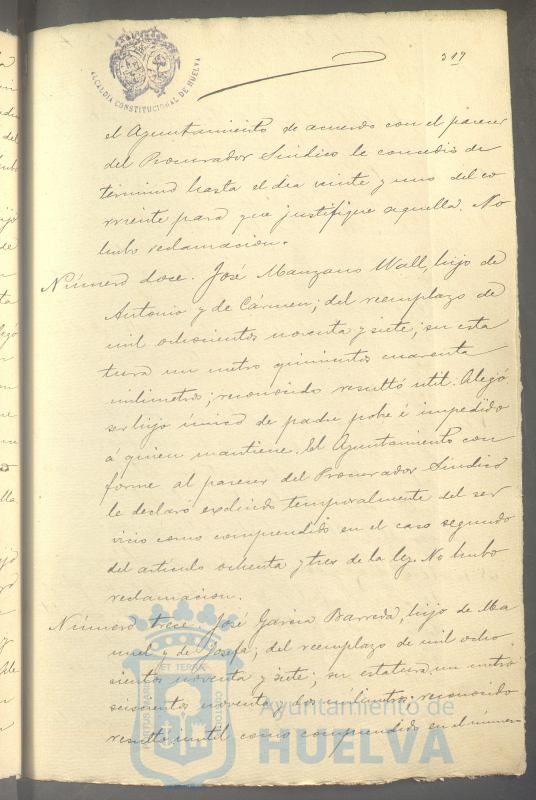 ALCALDIA CONSTITUCIONAL DE HUELVA
319
el Ayuntamiento de acuerdo con el parecer
del Procurador Sindico le concedió de
termino hasta el dia veinte y uno del co
rriente para que justifique aquella. No
hubo reclamacion.
Número doce. José Manzano Wall, hijo de
Antonio y de Cármen; del reemplazo de
mil ochocientos noventa y siete; su esta
tura un metro quinientos cuarenta
milimetros; reconocido resultó util. Alegó
ser hijo único de padre pobre é impedido
á quien mantiene. El Ayuntamiento con
forme al parecer del Procurador Sindico
le declaró excluido temporalmente del ser
vicio como comprendido en el caso segundo
del artículo ochenta y tres de la ley. No hubo
reclamacion.
Número trece. José Garcia Barreda, hijo de Ma
nuel y de Josefa; del reemplazo de mil ocho
cientos noventa y siete; su estatura un metro
seiscientos noventa y dos milimetros; reconocido
resultó inutil como comprendido en el número
Ayuntamiento de
HUELVA